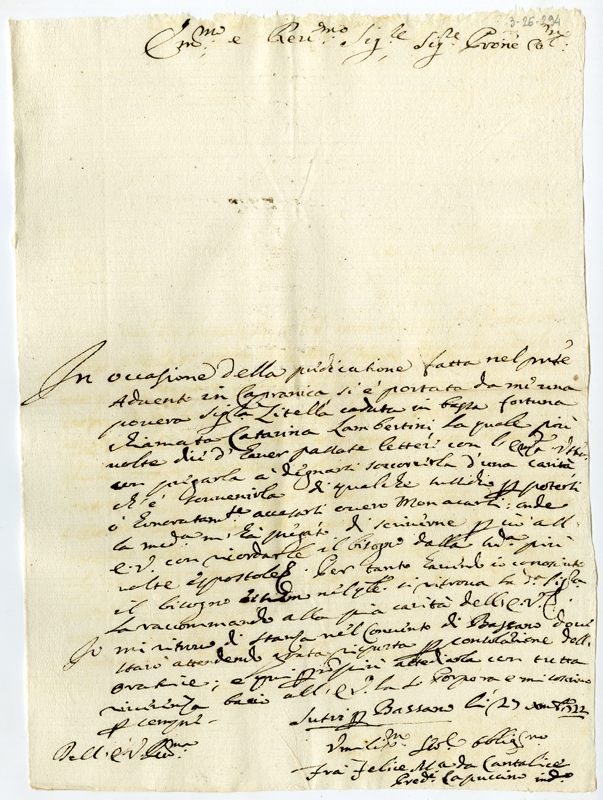 3-26-294
Em.mo e Rev.mo Sig.re Sig.re Prone
In occasione della predicatione fatta nel pnte
Advento in Capranica si è portata da me una
povera Sig.la Zitella caduta in bassa fortuna
chiamata Catarina Lambertini la quale più
volte dice d'haver passate lettere con l'
con pregarla a degnarsi soccorrerla d'una carità
ch'è sovvenirla di qualche sussidio p poterli
ò honoratam.te accasarsi overo Monacarsi; onde
la med.ma mi hà pregato di scriverne p ciò all'
E.V. con ricordarle il bisogno dalla med.ma più
volte espostole. Per tanto havendo io conosciuto
il bisogno nel q.le si ritrova la d.a Sig.la
la raccommando alla pia carità dell'E.V.
Io mi ritrovo di stanza nel Convento di Bassano dove
starò attendendo risposta p consolatione dell'
Oratrice; e con tutta
riverenza bacio all'E.V. la S. Porpora e mi
p sempre.
Sutri p Bassano li 27
Dell'E.V. Rev.ma
Umilis.mo obblig.mo
Fra Felice M.a da Cantalice
Pred.re Capuccino ind.o